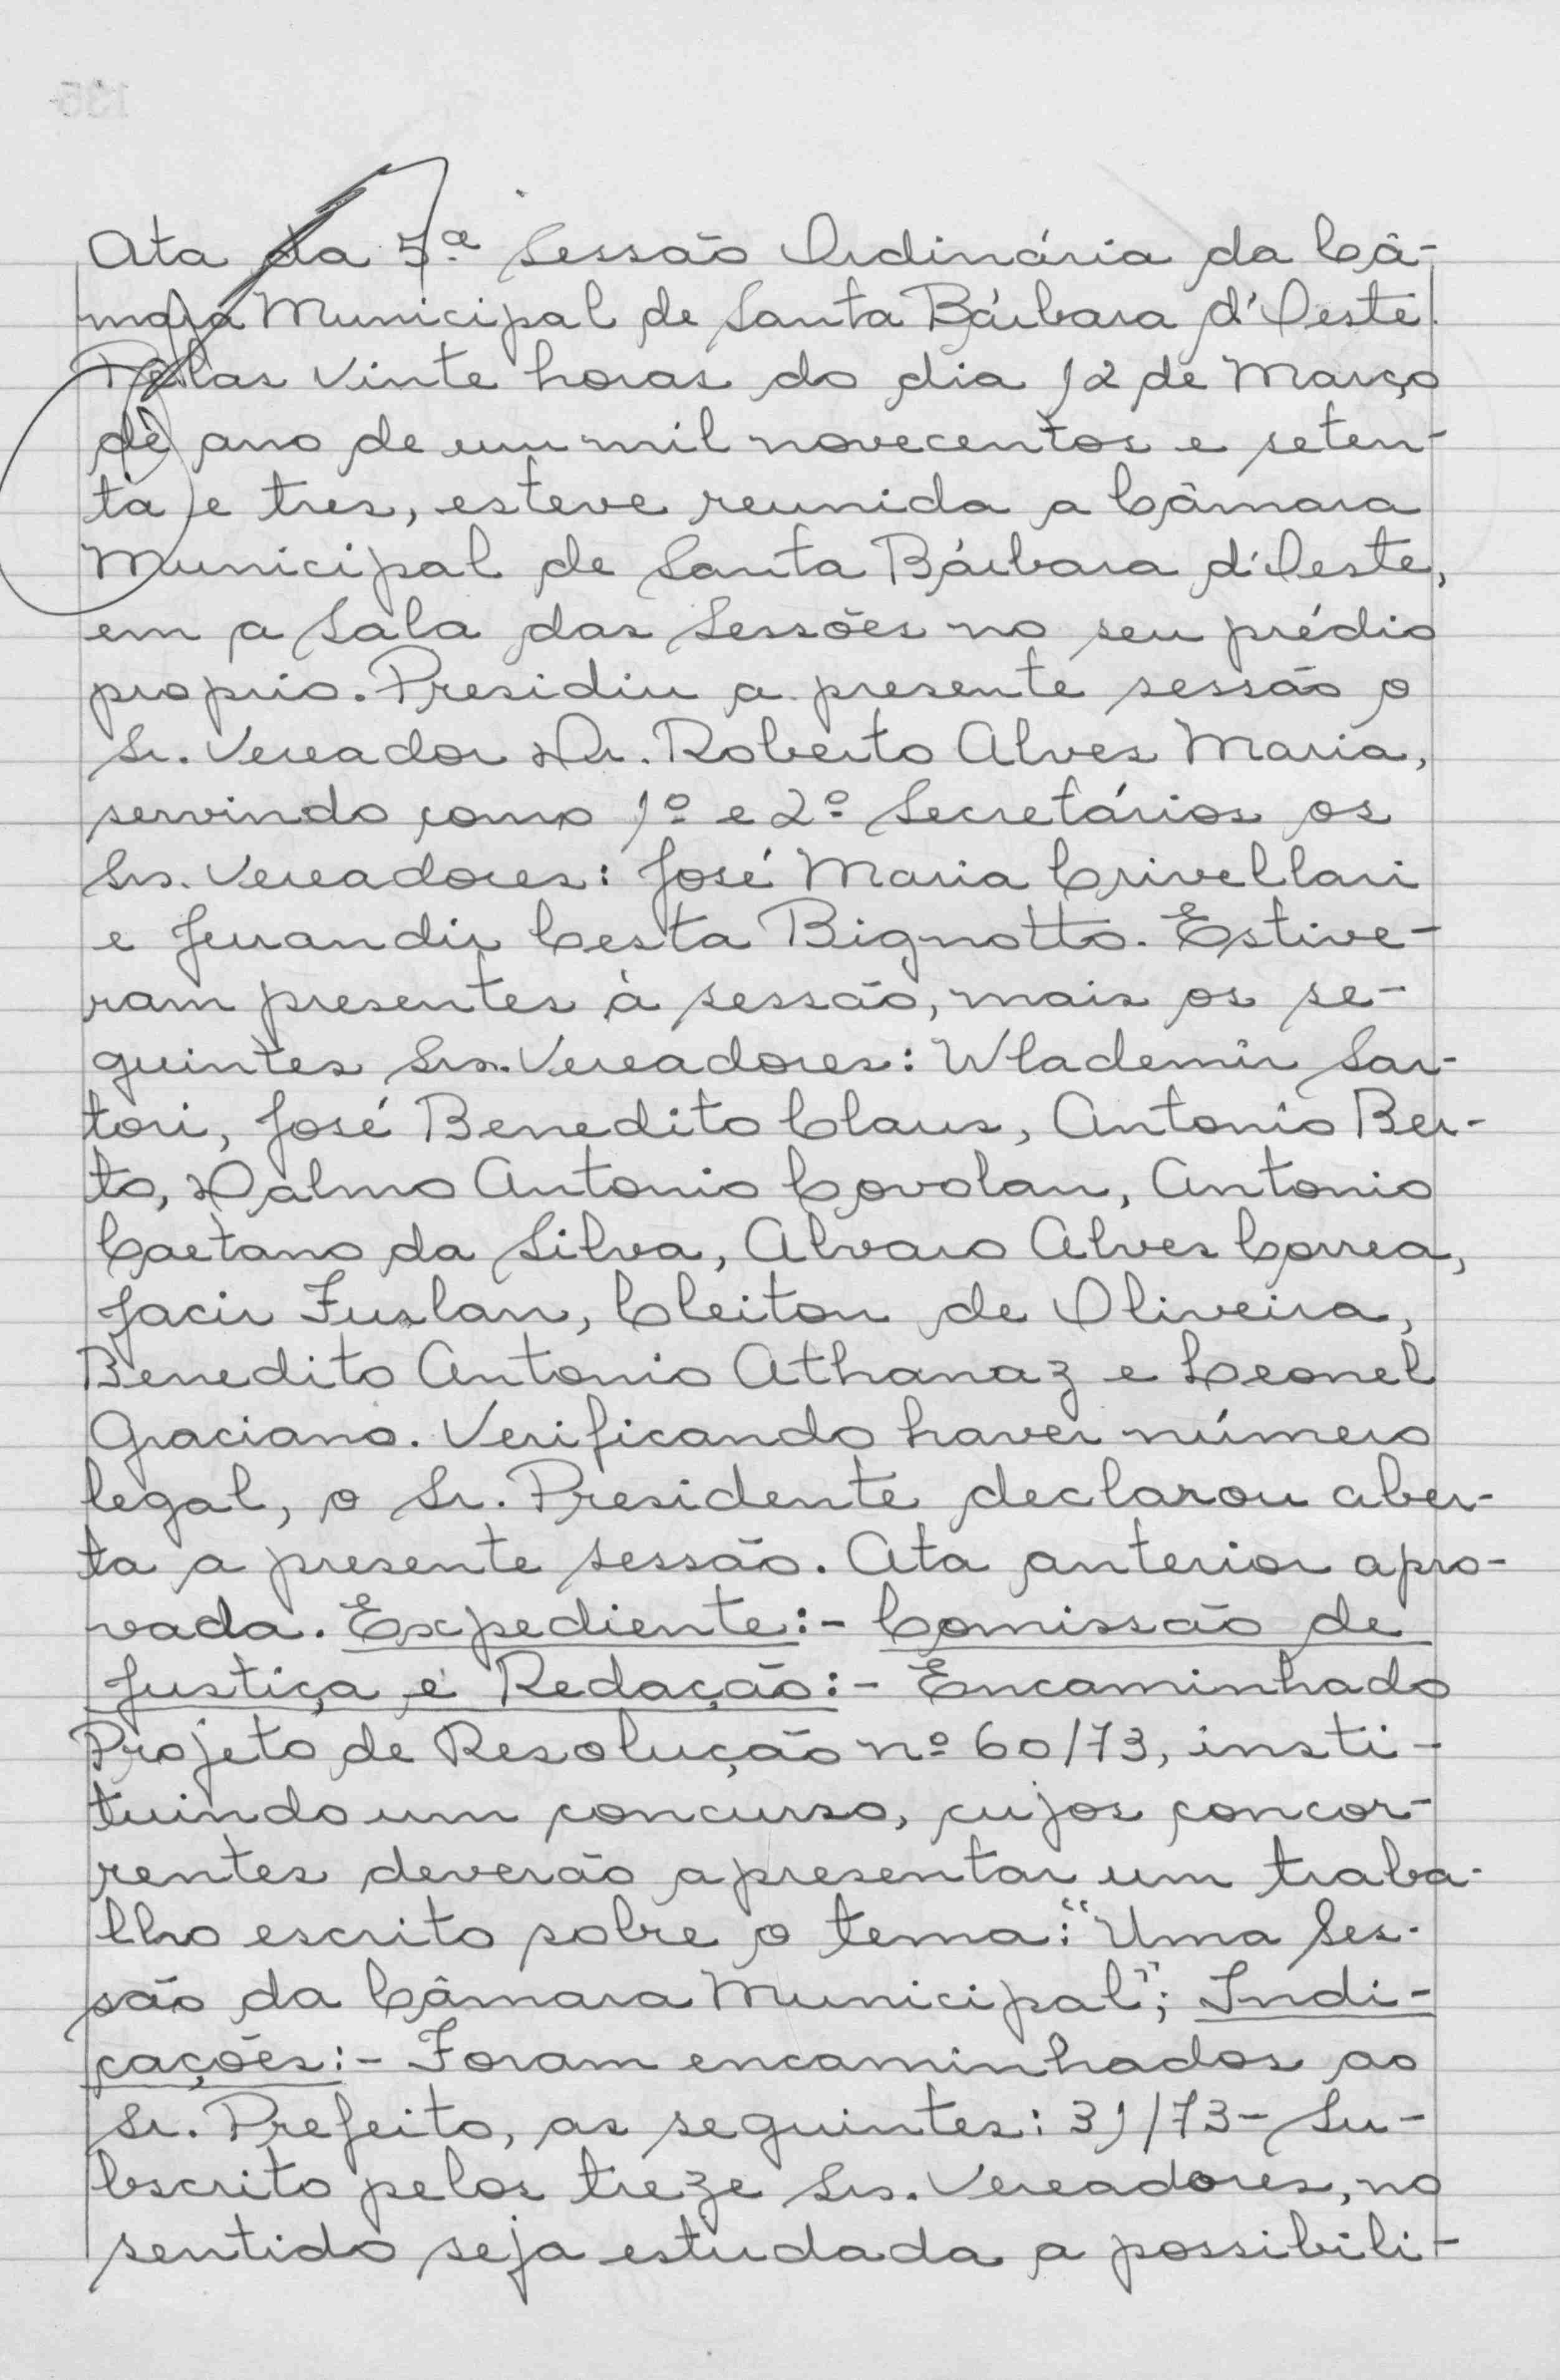 Ata da 5ª Sessão Ordinária da Câ-
mara Municipal de Santa Bárbara d'Oeste.
Pelas vinte horas do dia 12 de Março
dè ano de um mil novecentos e seten-
ta e tres, esteve reunida a Câmara
Municipal de Santa Bárbara d'Oeste,
em a Sala das Sessões no seu prédio
proprio. Presidiu a presente sessão o
Sr. Vereador Dr. Roberto Alves Maria,
servindo como 1º e 2º Secretários os
Srs. Vereadores: José Maria Crivellari
e Jurandir Cesta Bignotto. Estive-
ram presentes à sessão, mais os se-
guintes Srs. Vereadores: Wlademir Sar-
tori, José Benedito Claus, Antonio Ber-
to, Dalmo Antonio Covolan, Antonio
Caetano da Silva, Alvaro Alves Correa,
Jacir Fuslan, Cleiton de Oliveira,
Benedito Antonio Athanaz e Leonel
Graciano. Verificando haver número
legal, o Sr. Presidente declarou aber-
ta a presente sessão. Ata anterior apro-
vada. Expediente:- Comissão de
Justiça e Redação:- Encaminhado
Projeto de Resolução nº 60/73, insti-
tuindo um concurso, cujos concor-
rentes deverão apresentar um traba-
lho escrito sobre o tema: "Uma Ses-
são da Câmara Municipal"; Indi-
cações:- Foram encaminhados ao
Sr. Prefeito, as seguintes: 31/73- Su-
bscrito pelos treze Srs. Vereadores, no
sentido seja estudada a possibili-